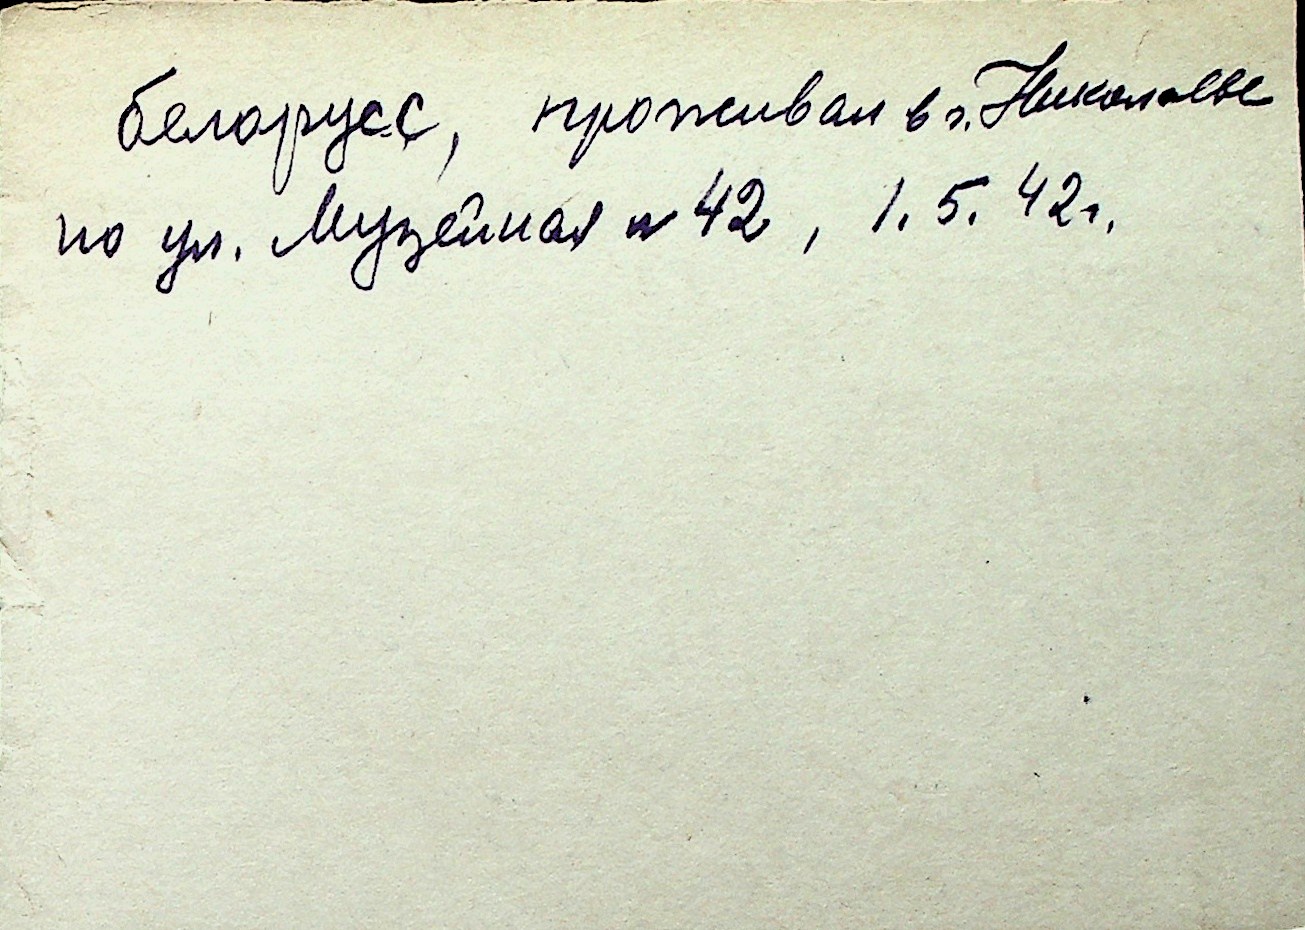 белорусс, проживал в г. Николаеве
по ул. Музейная № 42, 1.5.42г.